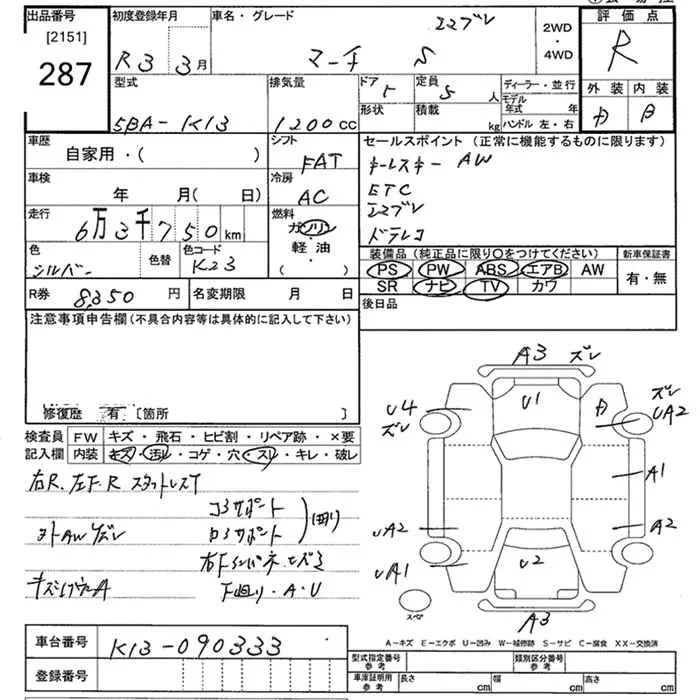 出品番号
[2151]
287
初度登録年月
R3 3月
車名・グレード
エスブレ
マーチ S
2WD
・
4WD
評価点
R
外装 内装
D B
型式
5BA-K13
排気量
1200CC
ドア
5
定員
5 人
形状
積載
kg
ディーラー・並行
モデル年式 年
ハンドル 左・右
車歴
自家用・( )
シフト
FAT
セールスポイント(正常に機能するものに限ります)
キーレスキー AW
ETC
エスブレ
ドラレコ
車検
年 月( 日)
冷房
AC
走行
6万3千750km
燃料
ガソリン
軽・油
( )
色
シルバー
色替
色コード
K23
装備品(純正品に限り○をつけてください)
PS PW ABS エアB AW
SR ナビ TV カワ
新車保証書
有・無
R券 8,350円
名変期限 月 日
後日品
注意事項申告欄(不具合内容等は具体的に記入して下さい)
修復歴 有 [箇所 ]
検査員記入欄
FW キズ・飛石・ヒビ割・リペア跡・×要
内装 キズ・汚レ・コゲ・穴・スレ・キレ・破レ
右R、左F.R スタットレスT
コアサポート
ロアサポート
曲り
外AWリズレ
下廻り・A・U
A3 ズレ
U1
U4
ズレ
D
ズレ
UA2
A1
A2
UA2
UA1
U2
A3
スペア
A-キズ E-エクボ U-凹み W-補修跡 S-サビ C-腐食 XX-交換済
車台番号 K13-090333
登録番号
型式指定番号参考
類別区分番号参考
車庫証明用参考 長さ cm 幅 cm 高さ cm